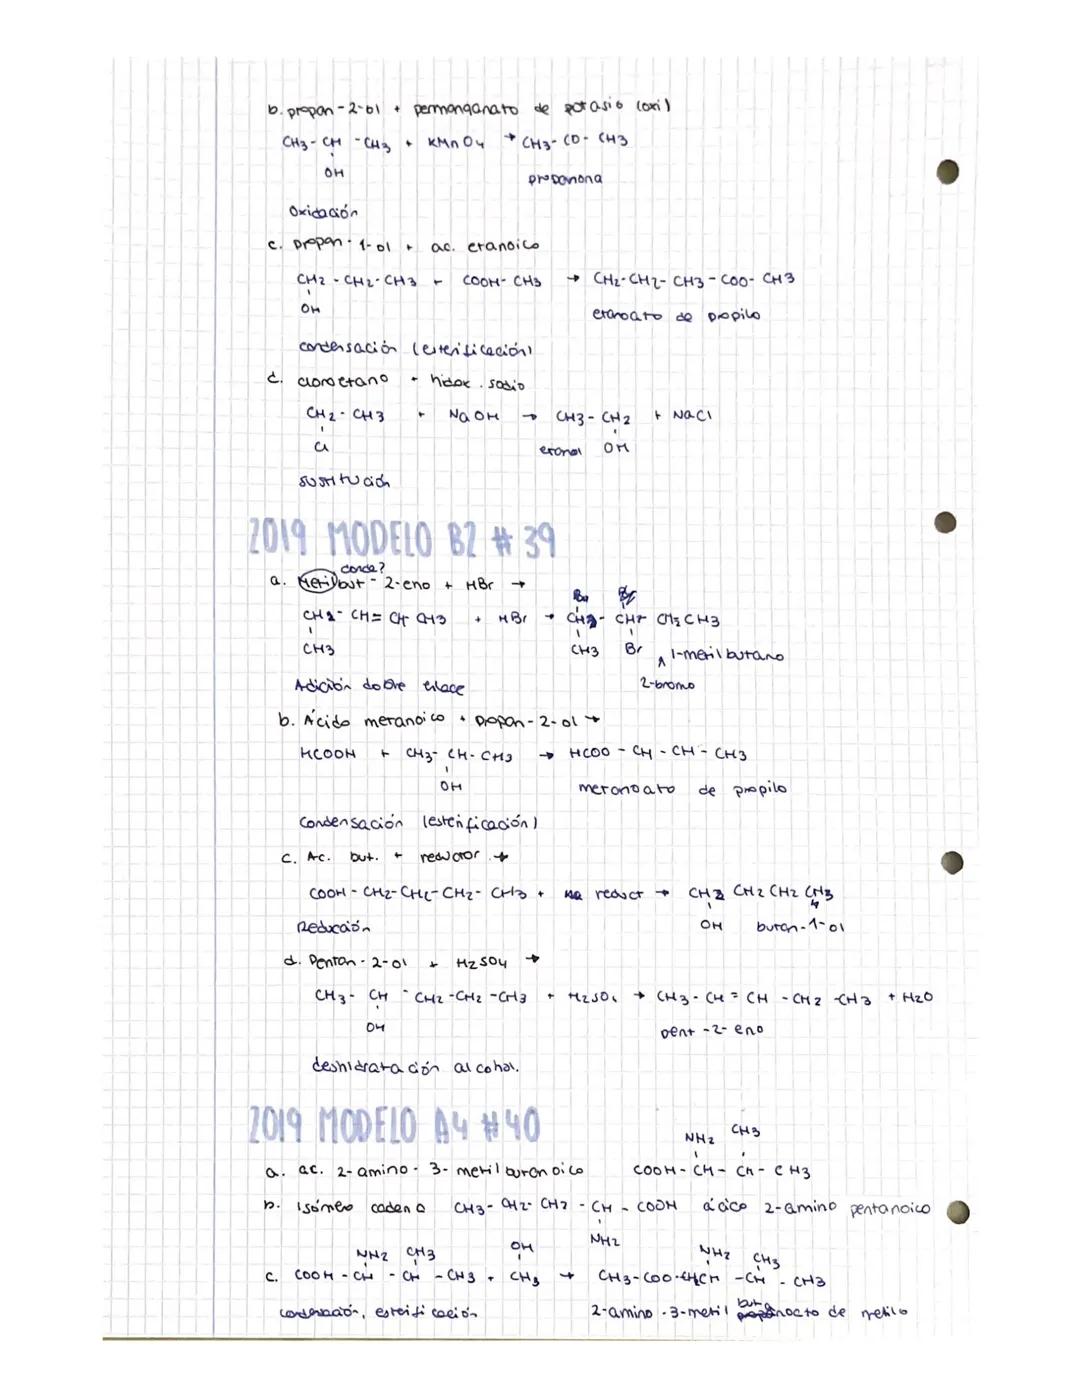 b. propan-2-ol + permanganato de potasio (oxi)
CH3 - CH - CH3 + KMnO4 → CH3 - CO - CH3
OH
propanona
Oxidación
c. propan-1-ol + ac. etanoico
CH2 - CH2 - CH3 + COOH - CH3 → CH2 - CH2 - CH3 - COO - CH3
OH
etanoato de propilo
condensación (esterificación)
d. cloroetano + hidox. sodio
CH2 - CH3 + NaOH → CH3 - CH2 + NaCl
Cl
etanol OH
sustitución
2019 MODELO B2 #39
donde?
a. Metilbut-2-eno + HBr →
Br Br
CH2 - CH = CH CH3 + HBr → CH2 - CH2 CH2 CH3
CH3 CH3 Br 1-metilbutano
Adición doble enlace 2-bromo
b. Ácido metanoico + propan-2-ol →
HCOOH + CH3 - CH - CH3 → HCOO - CH - CH - CH3
OH
metanoato de propilo
condensación (esterificación)
c. Ac. but. + reductor →
COOH - CH2 - CH2 - CH2 - CH3 + reduct → CH2 CH2 CH2 CH3
4
Reducación OH butan-1-ol
d. Pentan-2-ol + H2SO4 →
CH3 - CH - CH2 - CH2 - CH3 + H2SO4 → CH3 - CH = CH - CH2 - CH3 + H2O
OH
pent-2-eno
deshidratación alcohol.
2019 MODELO A4 #40
NH2 CH3
a. ac. 2-amino-3-metilbutanoico COOH - CH - CH - CH3
b. isómero cadena CH3 - CH2 - CH2 - CH - COOH ácico 2-amino pentanoico
NH2
NH2 CH3 OH NH2 CH3
c. COOH - CH - CH - CH3 + CH3 → CH3 - COO - CH - CH - CH3
condensación, esterificación 2-amino-3-metil butanoato de metilo